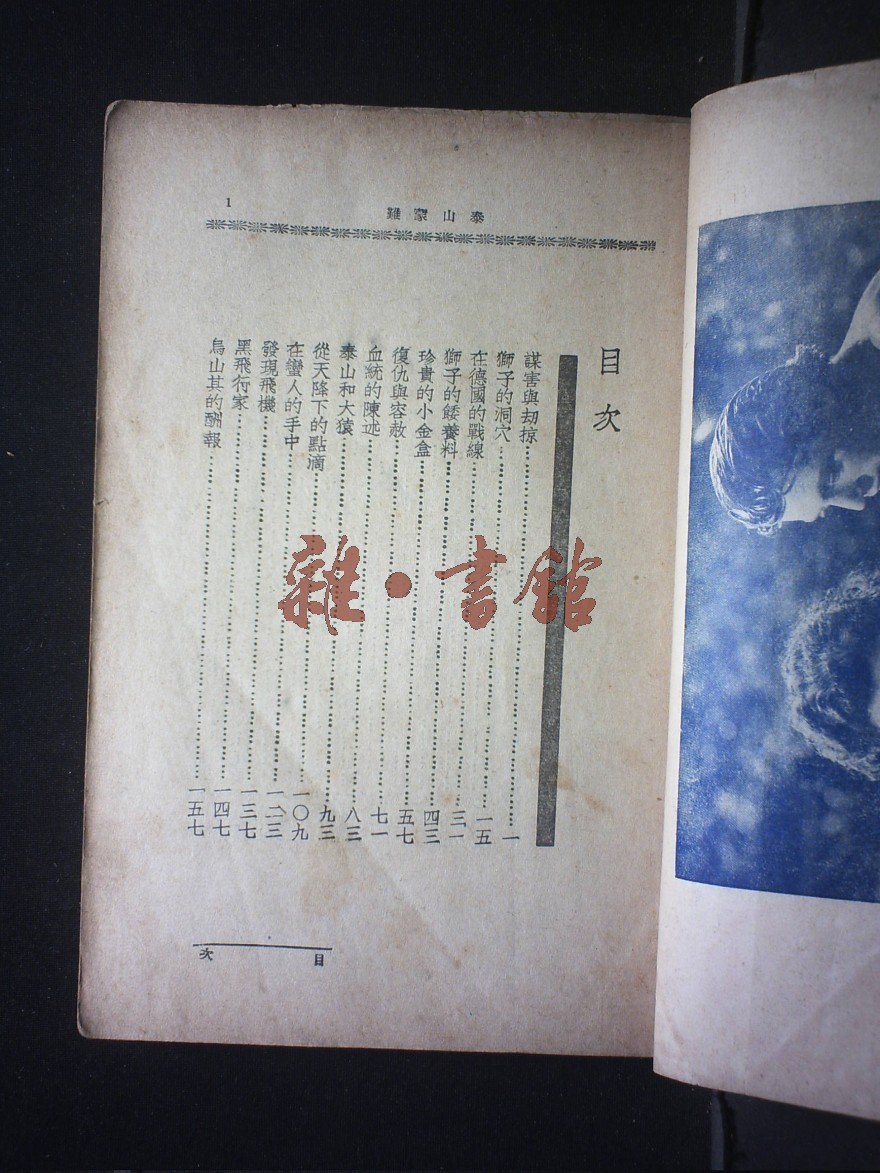 1
泰山蒙難
目次
謀害與劫掠……一
獅子的洞穴……一五
在德國的戰線……三一
獅子的餧養料……四三
珍貴的小金盒……五七
復仇與容赦……七一
血統的陳述……八三
泰山和大猿……九三
從天降下的點滴……一〇九
在蠻人的手中……一二三
發現飛機……一三七
黑飛行家……一四七
烏山其的酬報……一五七
目次
雜·書館